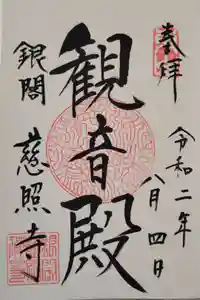 奉拝
令和二年
八月四日
観音殿
銀閣
慈照寺